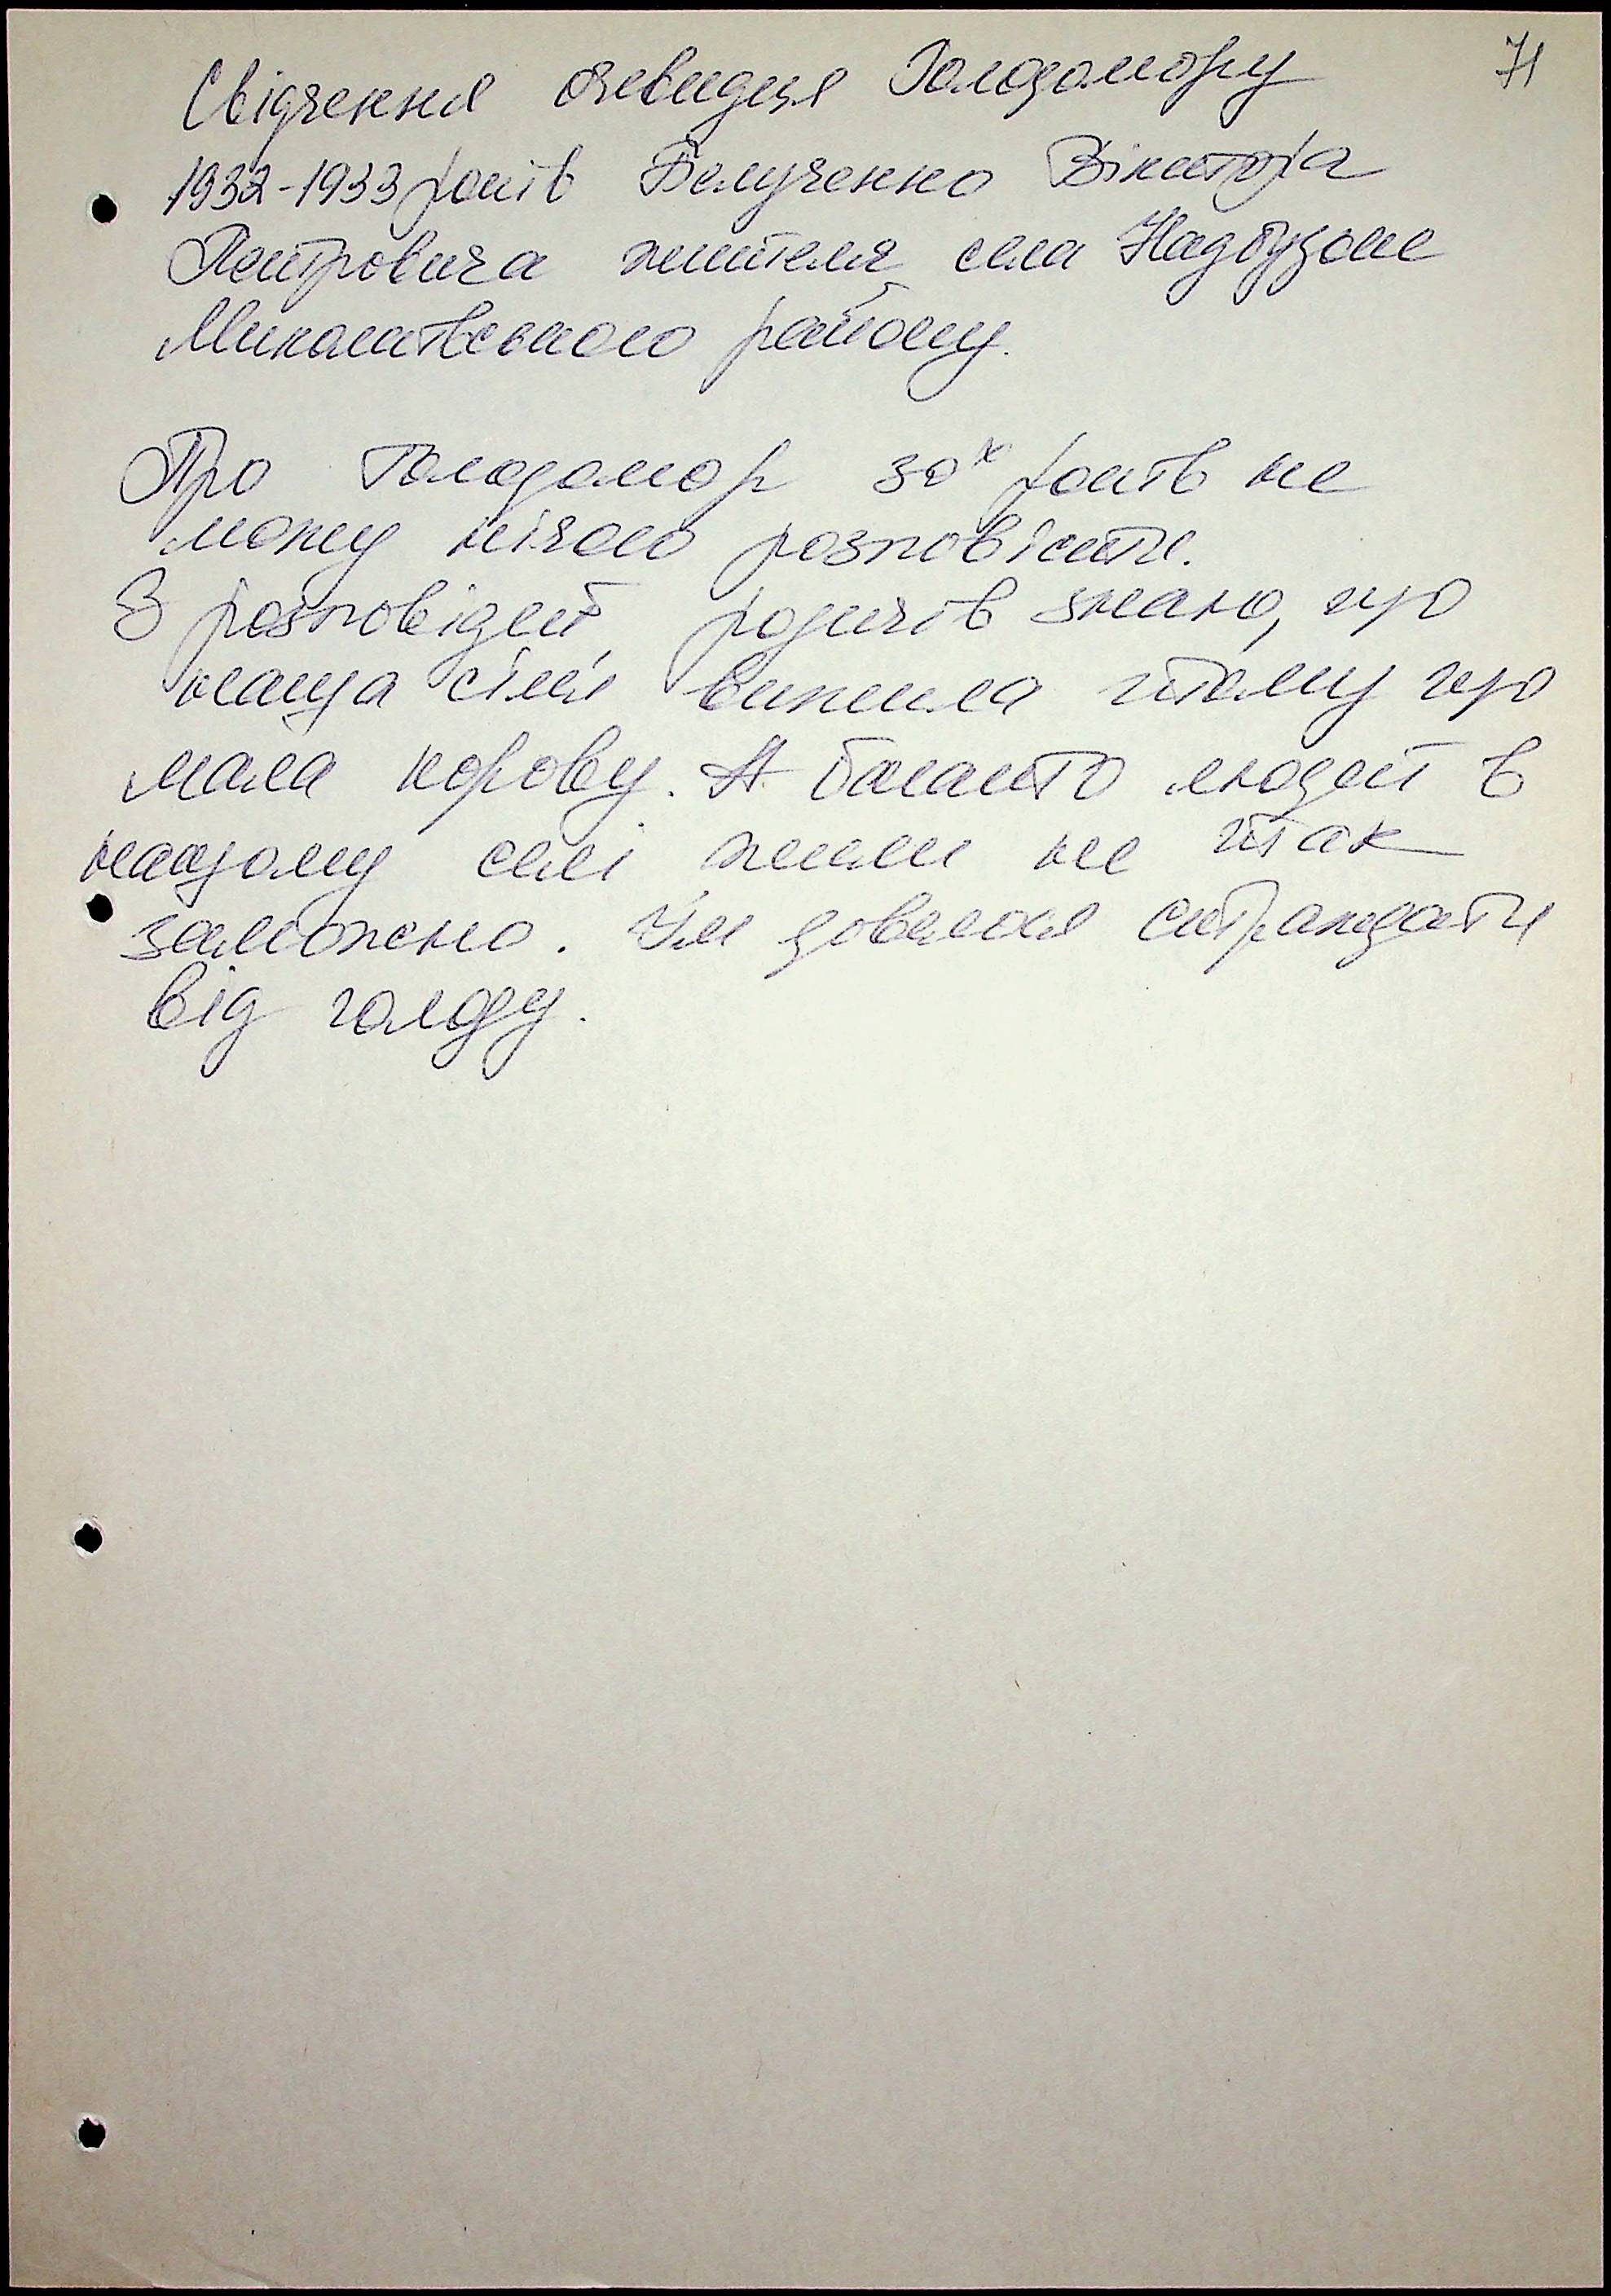 71
Свідчення очевидця Голодомору
1932-1933 років Белученко Віктора
Петровича жителя села Надбузьке
Миколаївського району.
Про Голодомор 30х років не
можу нічого розповісти.
З розповідей родичів знаю, що
наша сім'я вижила тому що
мала корову. А багато людей в
нашому селі жили не так
заможно. Їм довелося страждати
від голоду.